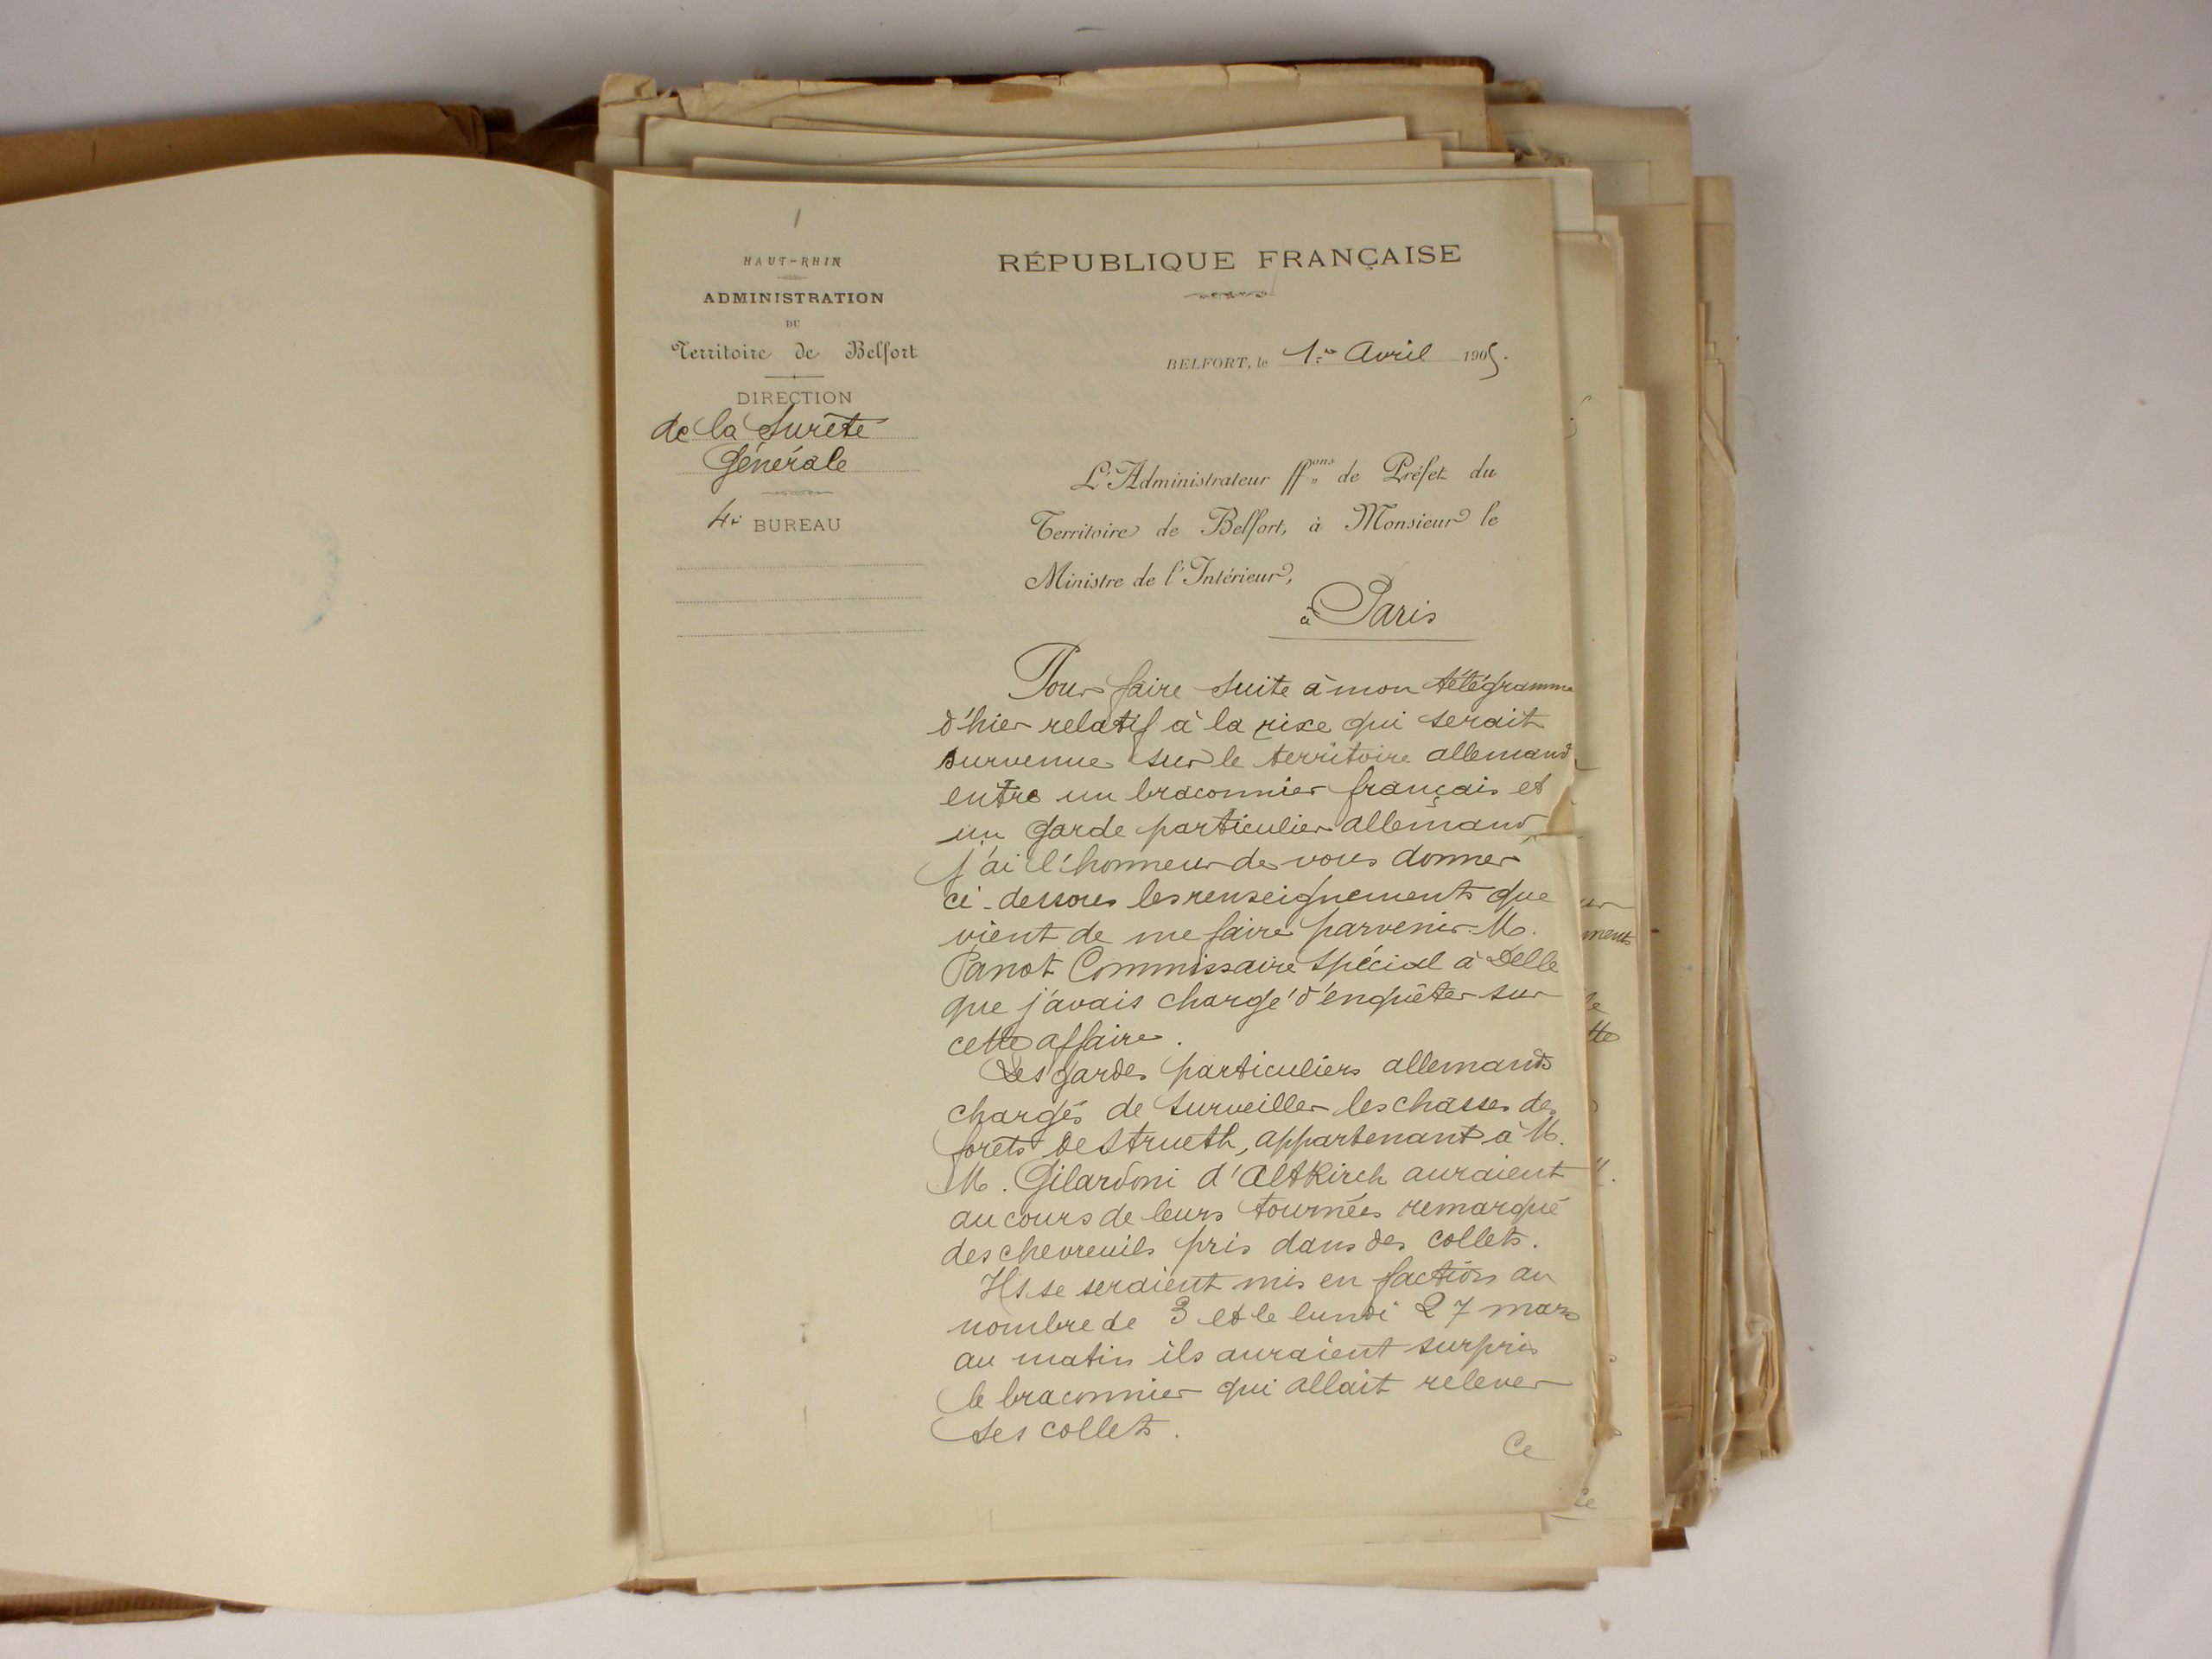 HAUT-RHIN
ADMINISTRATION
DU
Territoire de Belfort
DIRECTION
de la Sureté
Générale
4e BUREAU
RÉPUBLIQUE FRANÇAISE
BELFORT, le 1er Avril 1905.
L'Administrateur ffons de Préfet du
Territoire de Belfort, à Monsieur le
Ministre de l'Intérieur,
à Paris
Pour faire suite à mon télégramme
d'hier relatif à la rixe qui serait
survenue sur le territoire allemand,
entre un braconnier français et
un garde particulier allemand,
j'ai l'honneur de vous donner
ci-dessous les renseignements que
vient de me faire parvenir M.
Panot Commissaire Spécial à Delle
que j'avais chargé d'enquêter sur
cette affaire.
Les gardes particuliers allemands
chargés de surveiller les chasses des
forêts de Strueth, appartenant à M.
M. Gilardoni d'Altkirch auraient
au cours de leurs tournées remarqué
des chevreuils pris dans des collets.
Ils se seraient mis en faction au
nombre de 3 et le lundi 27 mars
au matin ils auraient surpris
le braconnier qui allait relever
ses collets.
Ce